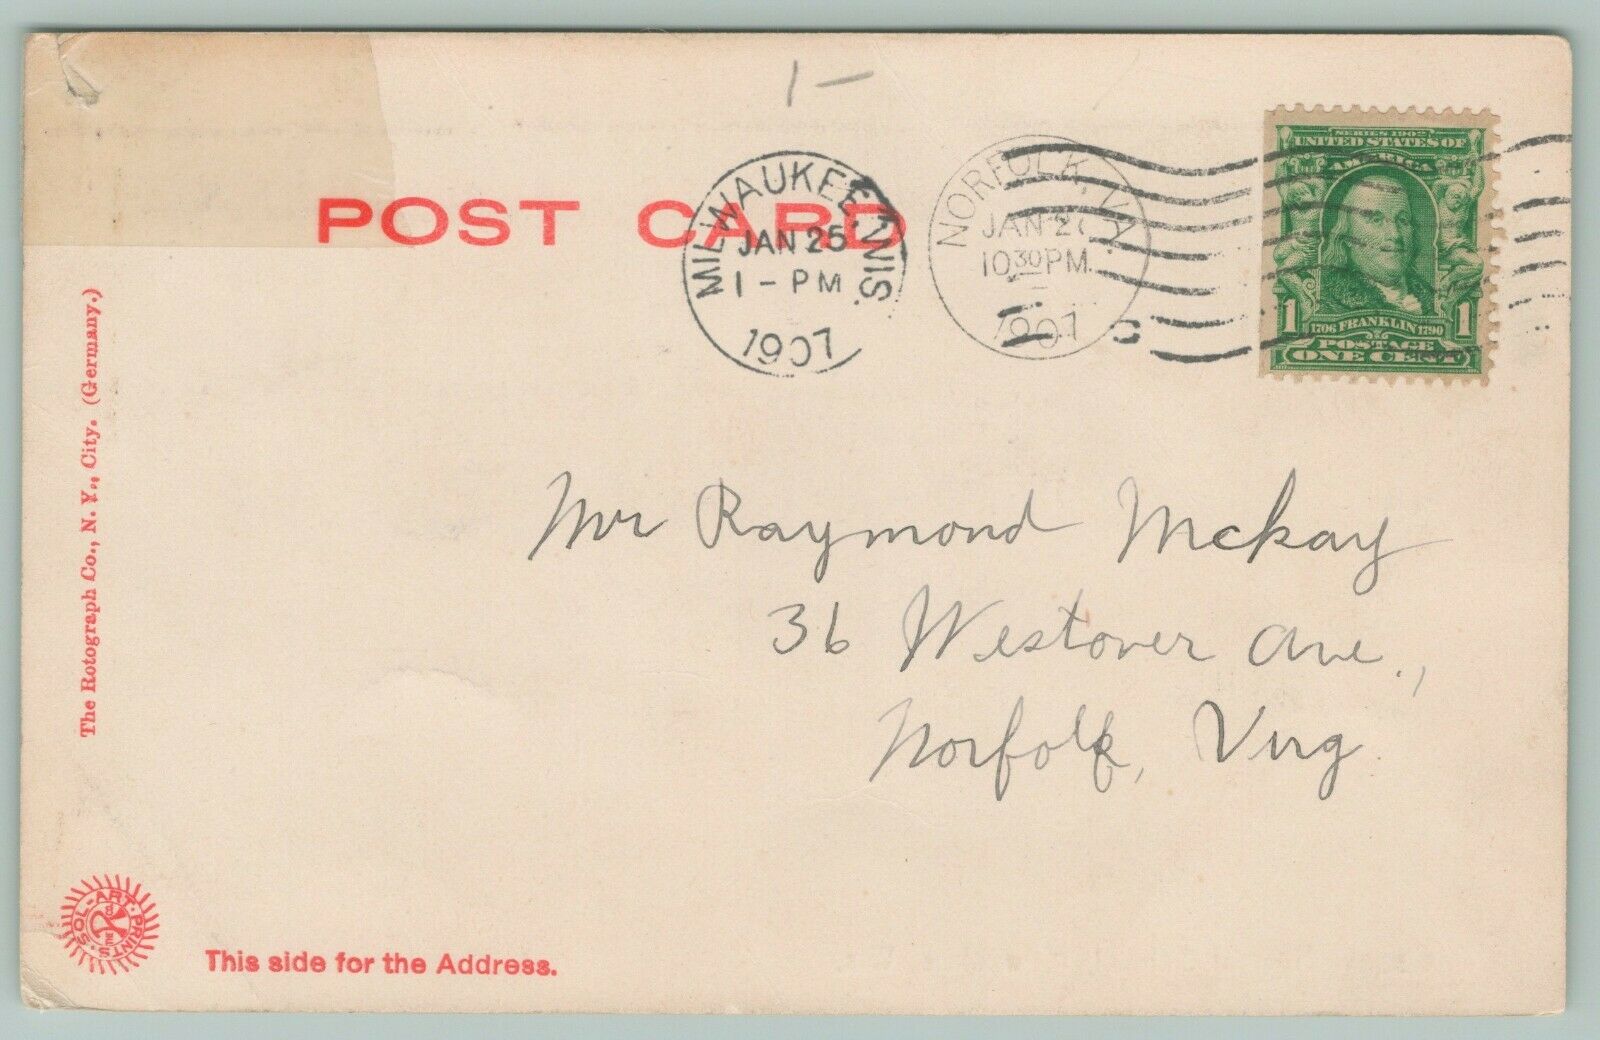 1 –
POST CARD
MILWAUKEE, WIS.
JAN 25
1 – PM
1907
NORFOLK, VA.
JAN 27
10 30 PM
1907
SERIES 1902
UNITED STATES OF
AMERICA
1 1706 FRANKLIN 1790 1
POSTAGE
ONE CENT
The Rotograph Co., N. Y., City. (Germany.)
Mr Raymond McKay
36 Westover Ave.,
Norfolk, Virg.
SOL-ART-PRINTS
This side for the Address.